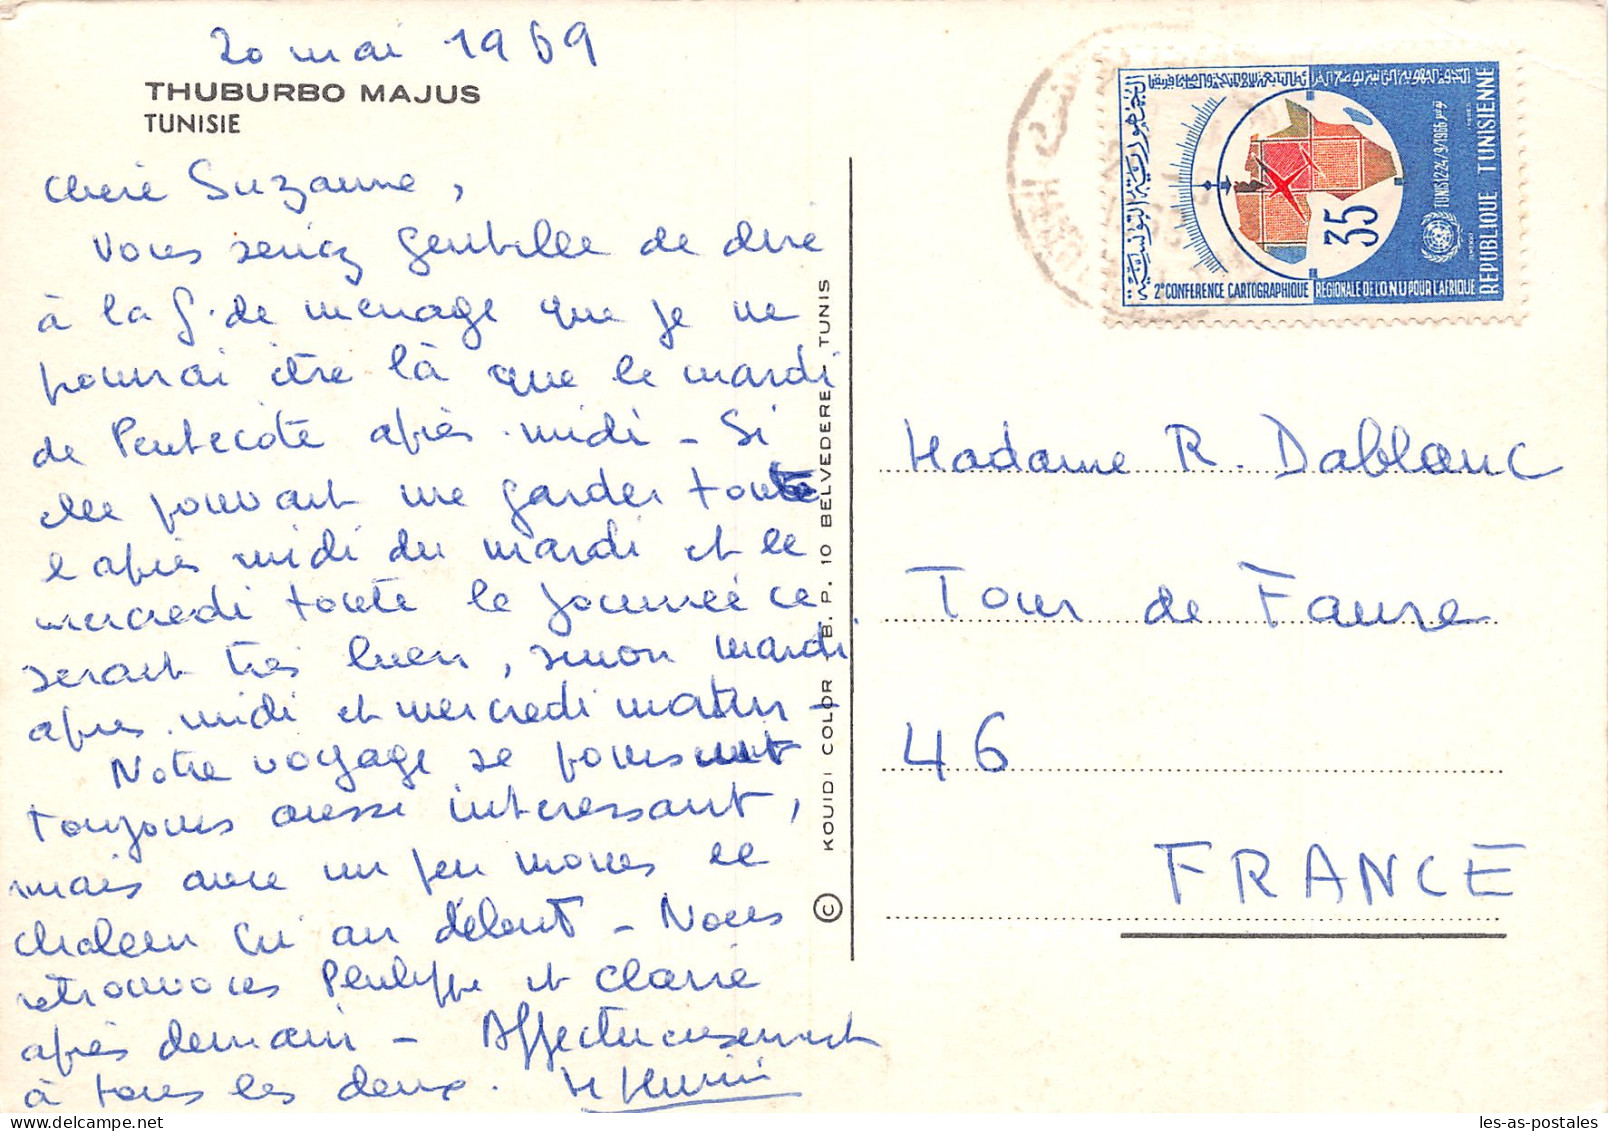 20 mai 1969
THUBURBO MAJUS
TUNISIE
Chère Suzanne,
Vous seriez gentille de dire
à la f. de ménage que je ne
pourrai être là que le mardi
de Pentecôte après-midi - Si
elle pouvait me garder toute
l'après midi du mardi et le
mercredi toute la journée ce
serait très bien, sinon mardi
après-midi et mercredi matin -
Notre voyage se poursuit
toujours aussi intéressant,
mais avec un peu moins de
chaleur qu'au début - Nous
retrouvons Philippe et Claire
après demain - Affectueusement
à tous les deux.
KOUIDI COLOR - B. P. 10 BELVEDERE - TUNIS
©
الجمهورية التونسية
2e CONFERENCE CARTOGRAPHIQUE REGIONALE DE L'O.N.U POUR L'AFRIQUE
35
TUNIS 12-24/9/1966 تونس
REPUBLIQUE TUNISIENNE
Madame R. Dablanc
Tour de Faure
46
FRANCE
les-as-postales